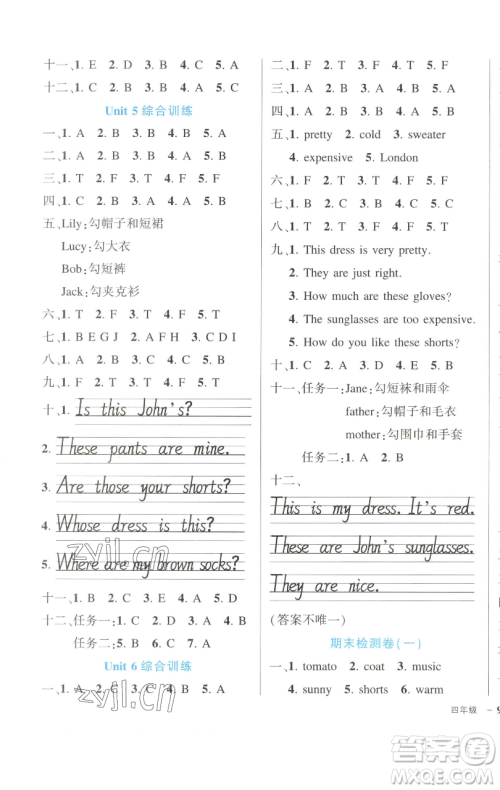 十一、1. E 2. D 3. B 4. C 5. A
十二、1. C 2. B 3. B 4. C 5. A
Unit 5 综合训练
一、1. A 2. B 3. B 4. B 5. A
二、1. B 2. A 3. A 4. B 5. A
三、1. F 2. T 3. T 4. F 5. T
四、1. C 2. B 3. C 4. A 5. A
五、Lily：勾帽子和短裙
Lucy：勾大衣
Bob：勾短裤
Jack：勾夹克衫
六、1. T 2. T 3. F 4. F 5. T
七、1. B E G J 2. A F H 3. C D I
八、1. B 2. A 3. B 4. A 5. A
九、1. D 2. A 3. E 4. B 5. C
十、1. Is this John's?
2. These pants are mine.
3. Are those your shorts?
4. Whose dress is this?
5. Where are my brown socks?
十一、1. B 2. C 3. E 4. A 5. D
十二、任务一：1. A 2. B 3. C 4. A
任务二：5. B 6. A 7. B 8. C
Unit 6 综合训练
一、1. A 2. A 3. B 4. A 5. A
二、1. F 2. F 3. T 4. T 5. T
三、1. B 2. A 3. B 4. C 5. C
四、1. F 2. T 3. T 4. F 5. F
五、1. pretty 2. cold 3. sweater
4. expensive 5. London
六、1. F 2. T 3. F 4. T 5. T
七、1. B 2. C 3. C 4. A 5. B
八、1. C 2. A 3. B 4. C 5. A
九、1. This dress is very pretty.
2. They are just right.
3. How much are these gloves?
4. The sunglasses are too expensive.
5. How do you like these shorts?
十、1. C 2. A 3. D 4. E 5. B
十一、任务一：Jane：勾短袜和雨伞
father：勾帽子和毛衣
mother：勾围巾和手套
任务二：1. A 2. B
十二、
This is my dress. It's red.
These are John's sunglasses.
They are nice.
(答案不唯一)
期末检测卷(一)
一、1. tomato 2. coat 3. music
4. sunny 5. shorts 6. warm
四年级
zyjl.cn
zyjl.cn
答案圈
MXQE.COM